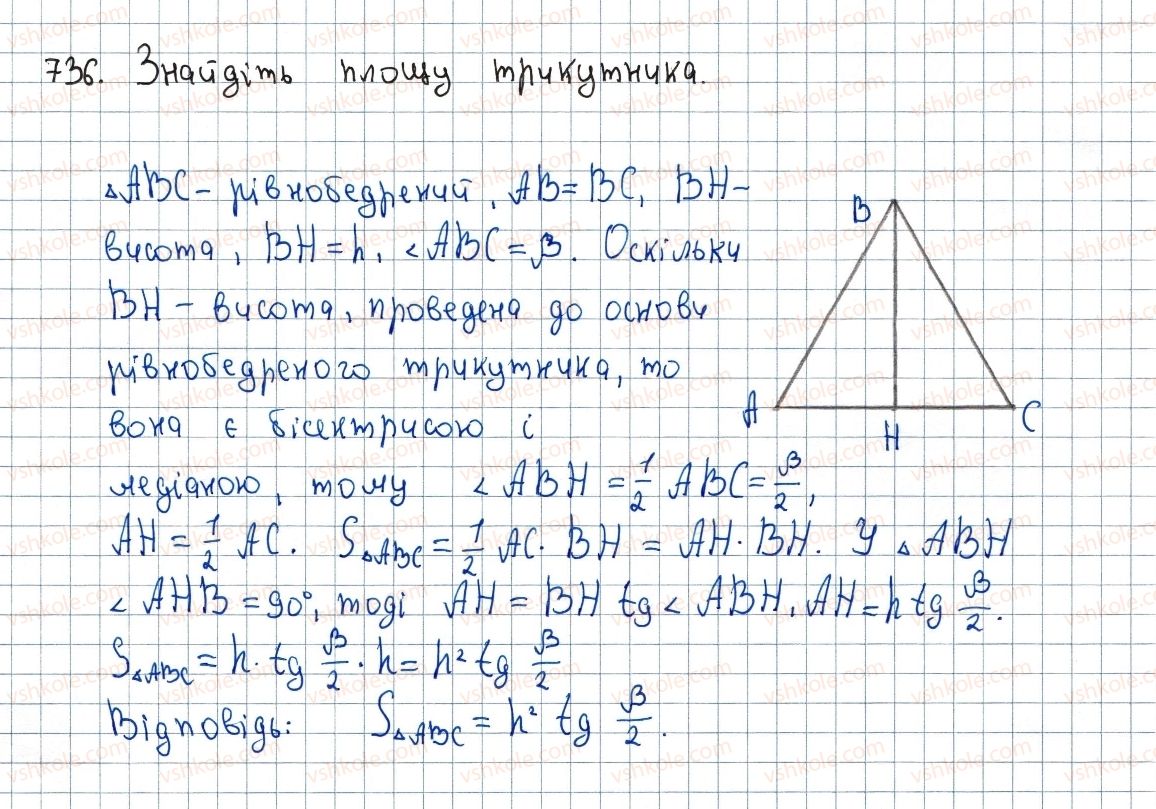 736. Знайдіть площу трикутника.
△ABC – рівнобедрений, AB = BC, BH –
висота, BH = h, <ABC = β. Оскільки
BH – висота, проведена до основи
рівнобедреного трикутника, то
вона є бісектрисою і
медіаною, тому <ABH = 1/2 ABC = β/2,
AH = 1/2 AC. S△ABC = 1/2 AC · BH = AH · BH. У △ABH
<AHB = 90°, тоді AH = BH tg <ABH, AH = h tg β/2.
S△ABC = h · tg β/2 · h = h² tg β/2
Відповідь: S△ABC = h² tg β/2.
B
A
H
C
vshkole.com